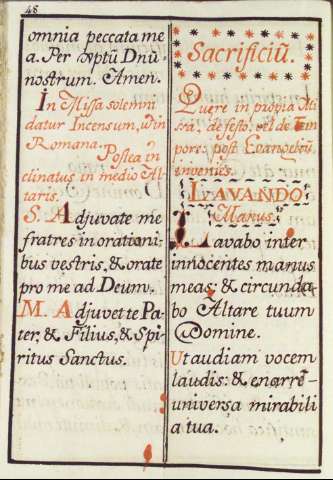 48
omnia peccata me
a. Per Xptũ Dnũ
nostrum. Amen.
In Missa solemni
datur Incensum, ut in
Romana.
Postea in
clinatus in medio Al
taris.
S. Adjuvate me
fratres in orationi-
bus vestris, & orate
pro me ad Deum.
M. Adjuvet te Pa-
ter, & Filius, & Spi-
ritus Sanctus.
Sacrificiũ.
Quere in propia Mi
ssa, de festo, vel de Tem
pore: post Evangeliũ,
invenies.
LAVANDO
Manus.
Lavabo inter
innocentes manus
meas, & circunda-
bo Altare tuum
Domine.
Ut audiam vocem
laudis: & enarrē-
universa mirabili
a tua.